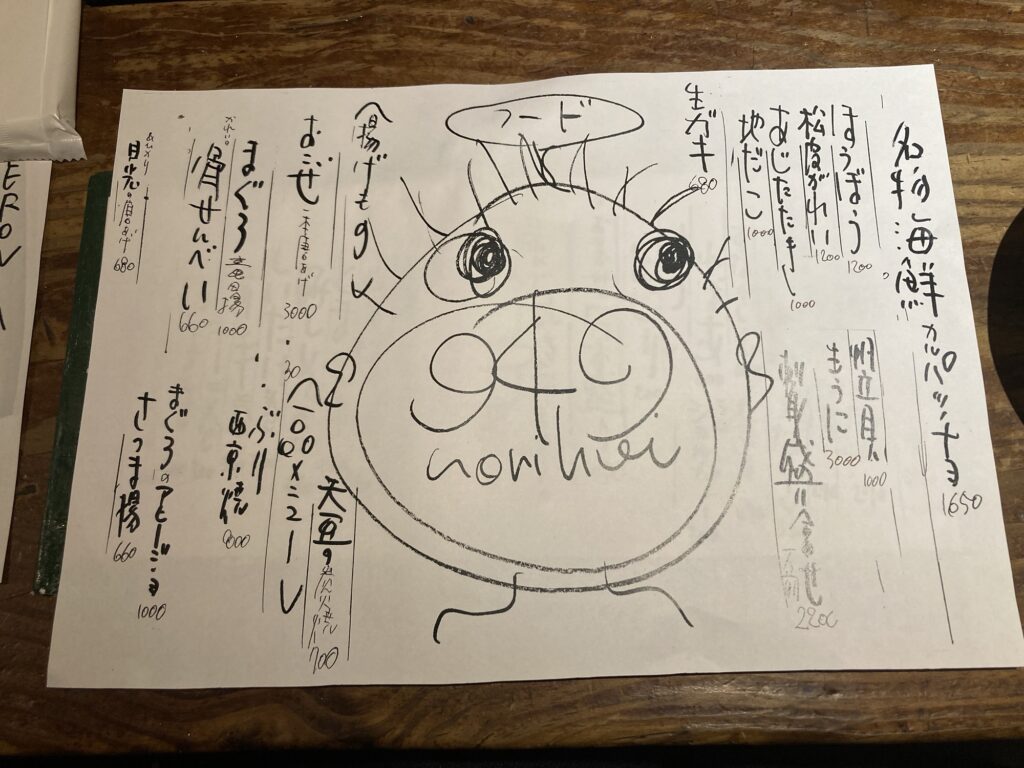 フード
名物海鮮カルパッチョ 1650
ほうぼう 1200
松皮がれい 1200
あじたたき 1000
地だこ 1000
生ガキ 680
帆立貝 1000
もうに 3000
刺身盛り合わせ
一人前
2200
norihiei
揚げもの
おこぜ 唐揚げ 3000
まぐろ 竜田揚 1000
かれいの
骨せんべい 660
めひかり
目光の唐あげ 680
天豆の炭火焼 700
100×ニュー
ぶり
西京焼
まぐろのアヒージョ 1000
さつま揚 660